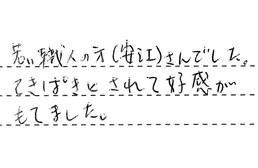 若い職人の方(安江)さんでした。
てきぱきとされて好感が
もてました。